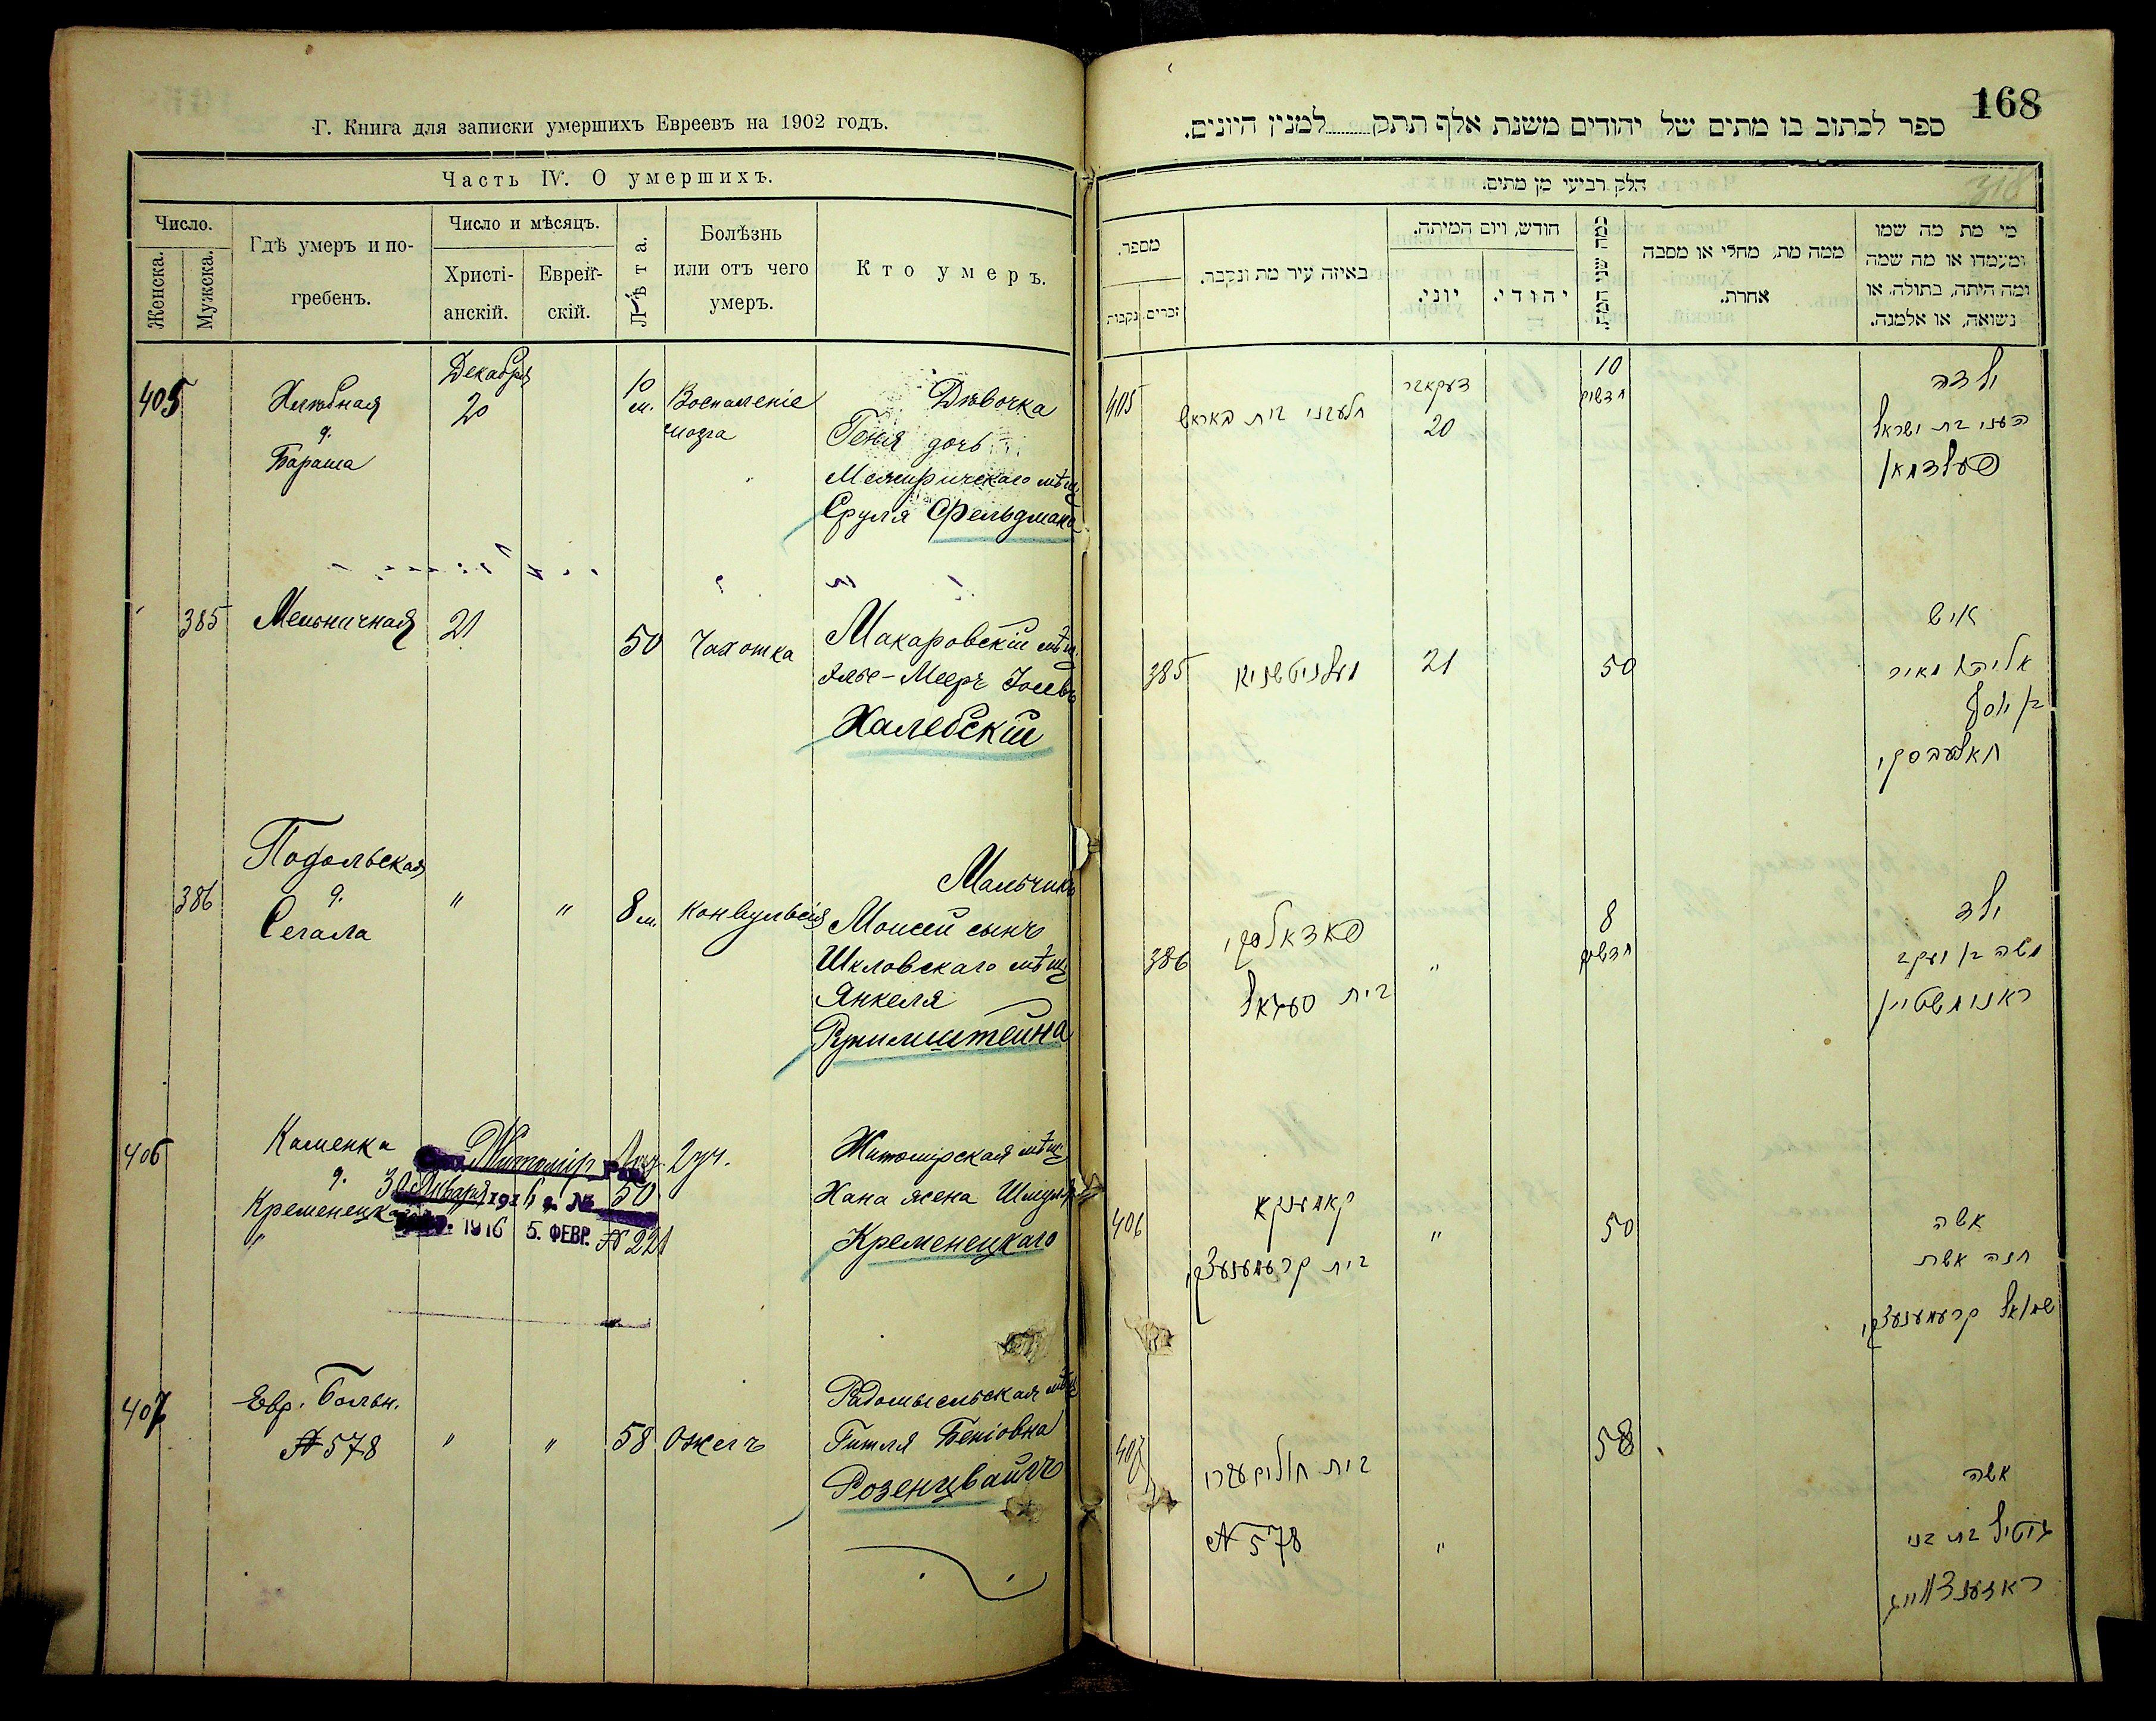 Г. Книга для записки умершихъ Евреевъ на 1902 годъ.
Часть IV. О умершихъ.
Число.
Женска.
Мужска.
Гдѣ умеръ и по-
гребенъ.
Число и мѣсяцъ.
Христі-
анскій.
Еврей-
скій.
Лѣта.
Болѣзнь
или отъ чего
умеръ.
Кто умеръ.
405
Хлѣбная
д.
Бараша
Декабря
20
10
м.
Воспаленіе
мозга
Дѣвочка
Геня дочь
Межиричскаго мѣщ.
Сруля Фельдмана
385
Мельничная
21
50
Чахотка
Макаровскій мѣщ.
Элье-Мееръ Іосевъ
Халебскій
386
Подольская
д.
Сегала
"
"
8 м.
Конвульсія
Мальчикъ
Моисей сынъ
Шкловскаго мѣщ.
Янкеля
Ружимштейна
406
Каменка
д.
Кременецкаго
Житомір
30 Января 1916 г. № 50
1916 5. ФЕВР. № 221
Житомирская мѣщ.
Хана жена Шмуля
Кременецкаго
407
Евр. Больн.
№ 578
"
"
58
Ожегъ
Радомысльская мѣщ.
Гитля Беніовна
Розенцвайгъ
168
ספר לכתוב בו מתים של יהודים משנת אלף תתק למנין היונים.
חלק רביעי מן מתים.
מספר.
נקבות
זכרים
באיזה עיר מת ונקבר.
חודש, ויום המיתה.
יוני.
יהודי.
כמה שני המת.
ממה מת, מחלי או מסבה
אחרת.
מי מת מה שמו
ומעמדו או מה שמה
ומה היתה, בתולה, או
נשואה, או אלמנה.
405
חלעבני בית באראש
דעקאבר
20
10
חדשים
ילדה
העני בת ישראל
פעלדמאן
385
מעלניטשניא
21
50
איש
אליהו מאיר
בן יוסף
חאלעבסקי
386
פאדאלסקי
בית סעגאל
"
8
חדשים
ילד
משה בן יעקב
ראזומשטיין
406
קאמענקא
בית קרעמענעצקי
"
50
אשה
חנה אשת
שמואל קרעמענעצקי
407
בית חולים עברי
№ 578
"
58
אשה
גיטיל בת בני
ראזענצווייג